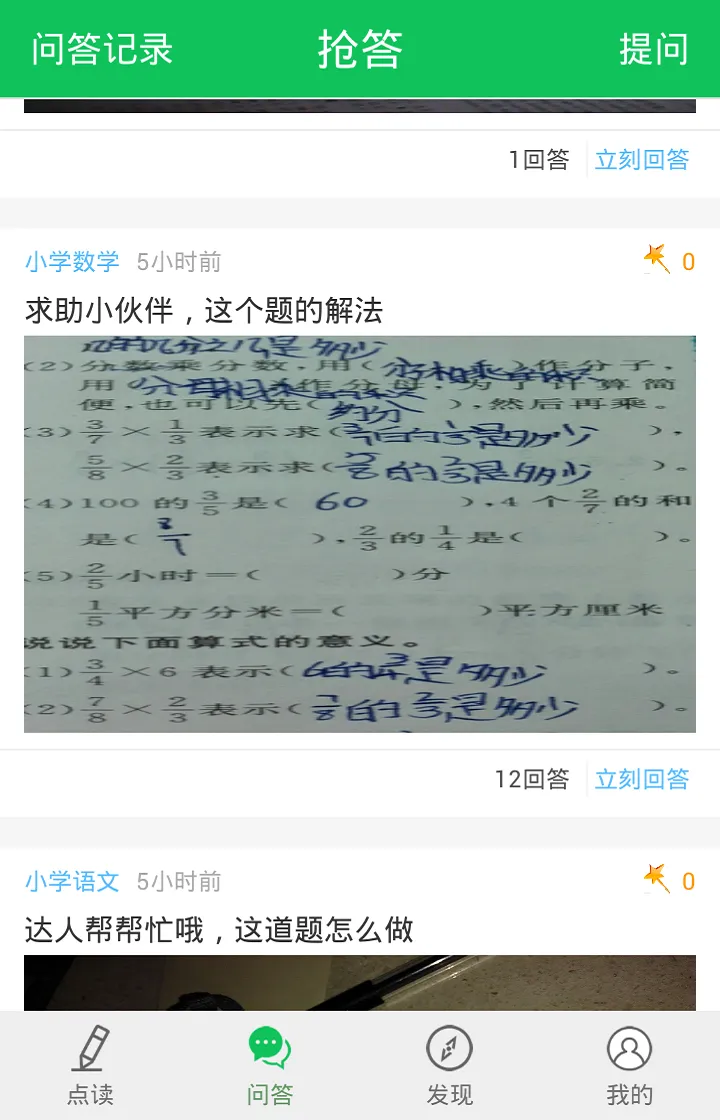 问答记录 抢答 提问
1回答 立刻回答
小学数学 5小时前 0
求助小伙伴，这个题的解法
几的几分之几是多少
(2)分数乘分数，用(分子相乘的积)作分子，
用(分母相乘的积)作分母，为了计算简
便，也可以先(约分)，然后再乘。
(3)3/7×1/3表示求(3/7的1/3是多少)，
5/8×2/3表示求(5/8的2/3是多少)。
(4)100的3/5是(60)，4个2/7的和
是(8/7)，2/3的1/4是()。
(5)2/5小时=()分
1/5平方分米=()平方厘米
说说下面算式的意义。
(1)3/4×6表示(6的3/4是多少)。
(2)7/8×2/3表示(7/8的2/3是多少)。
12回答 立刻回答
小学语文 5小时前 0
达人帮帮忙哦，这道题怎么做
点读 问答 发现 我的